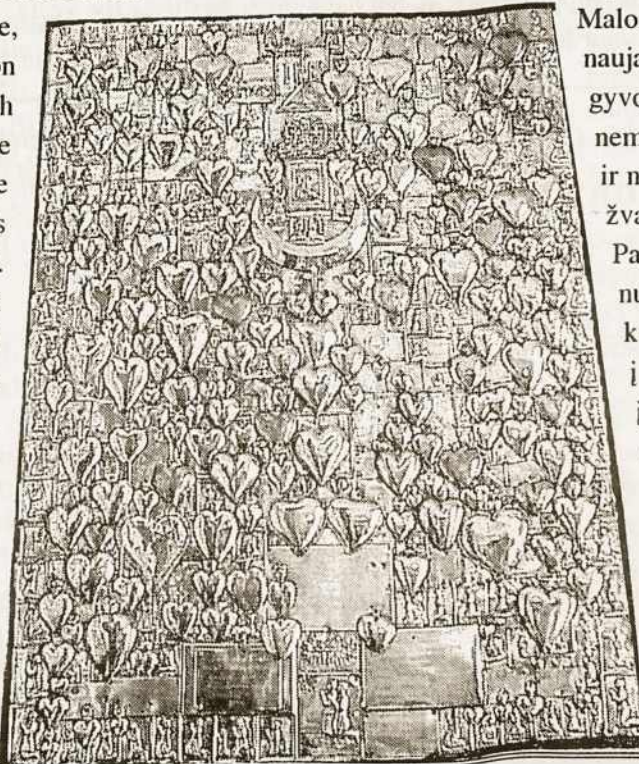 e,
on
h
e
e
s
.
Malo
nauja
gyvo
nem
ir n
žva
Pa
nu
k
į
i